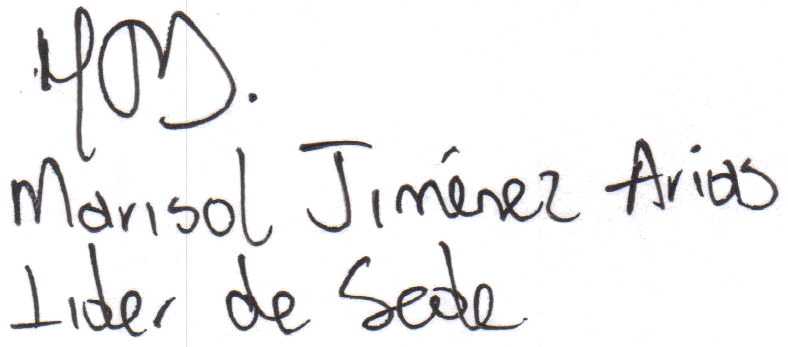 Marisol Jiménez Arias
Lider de Sede